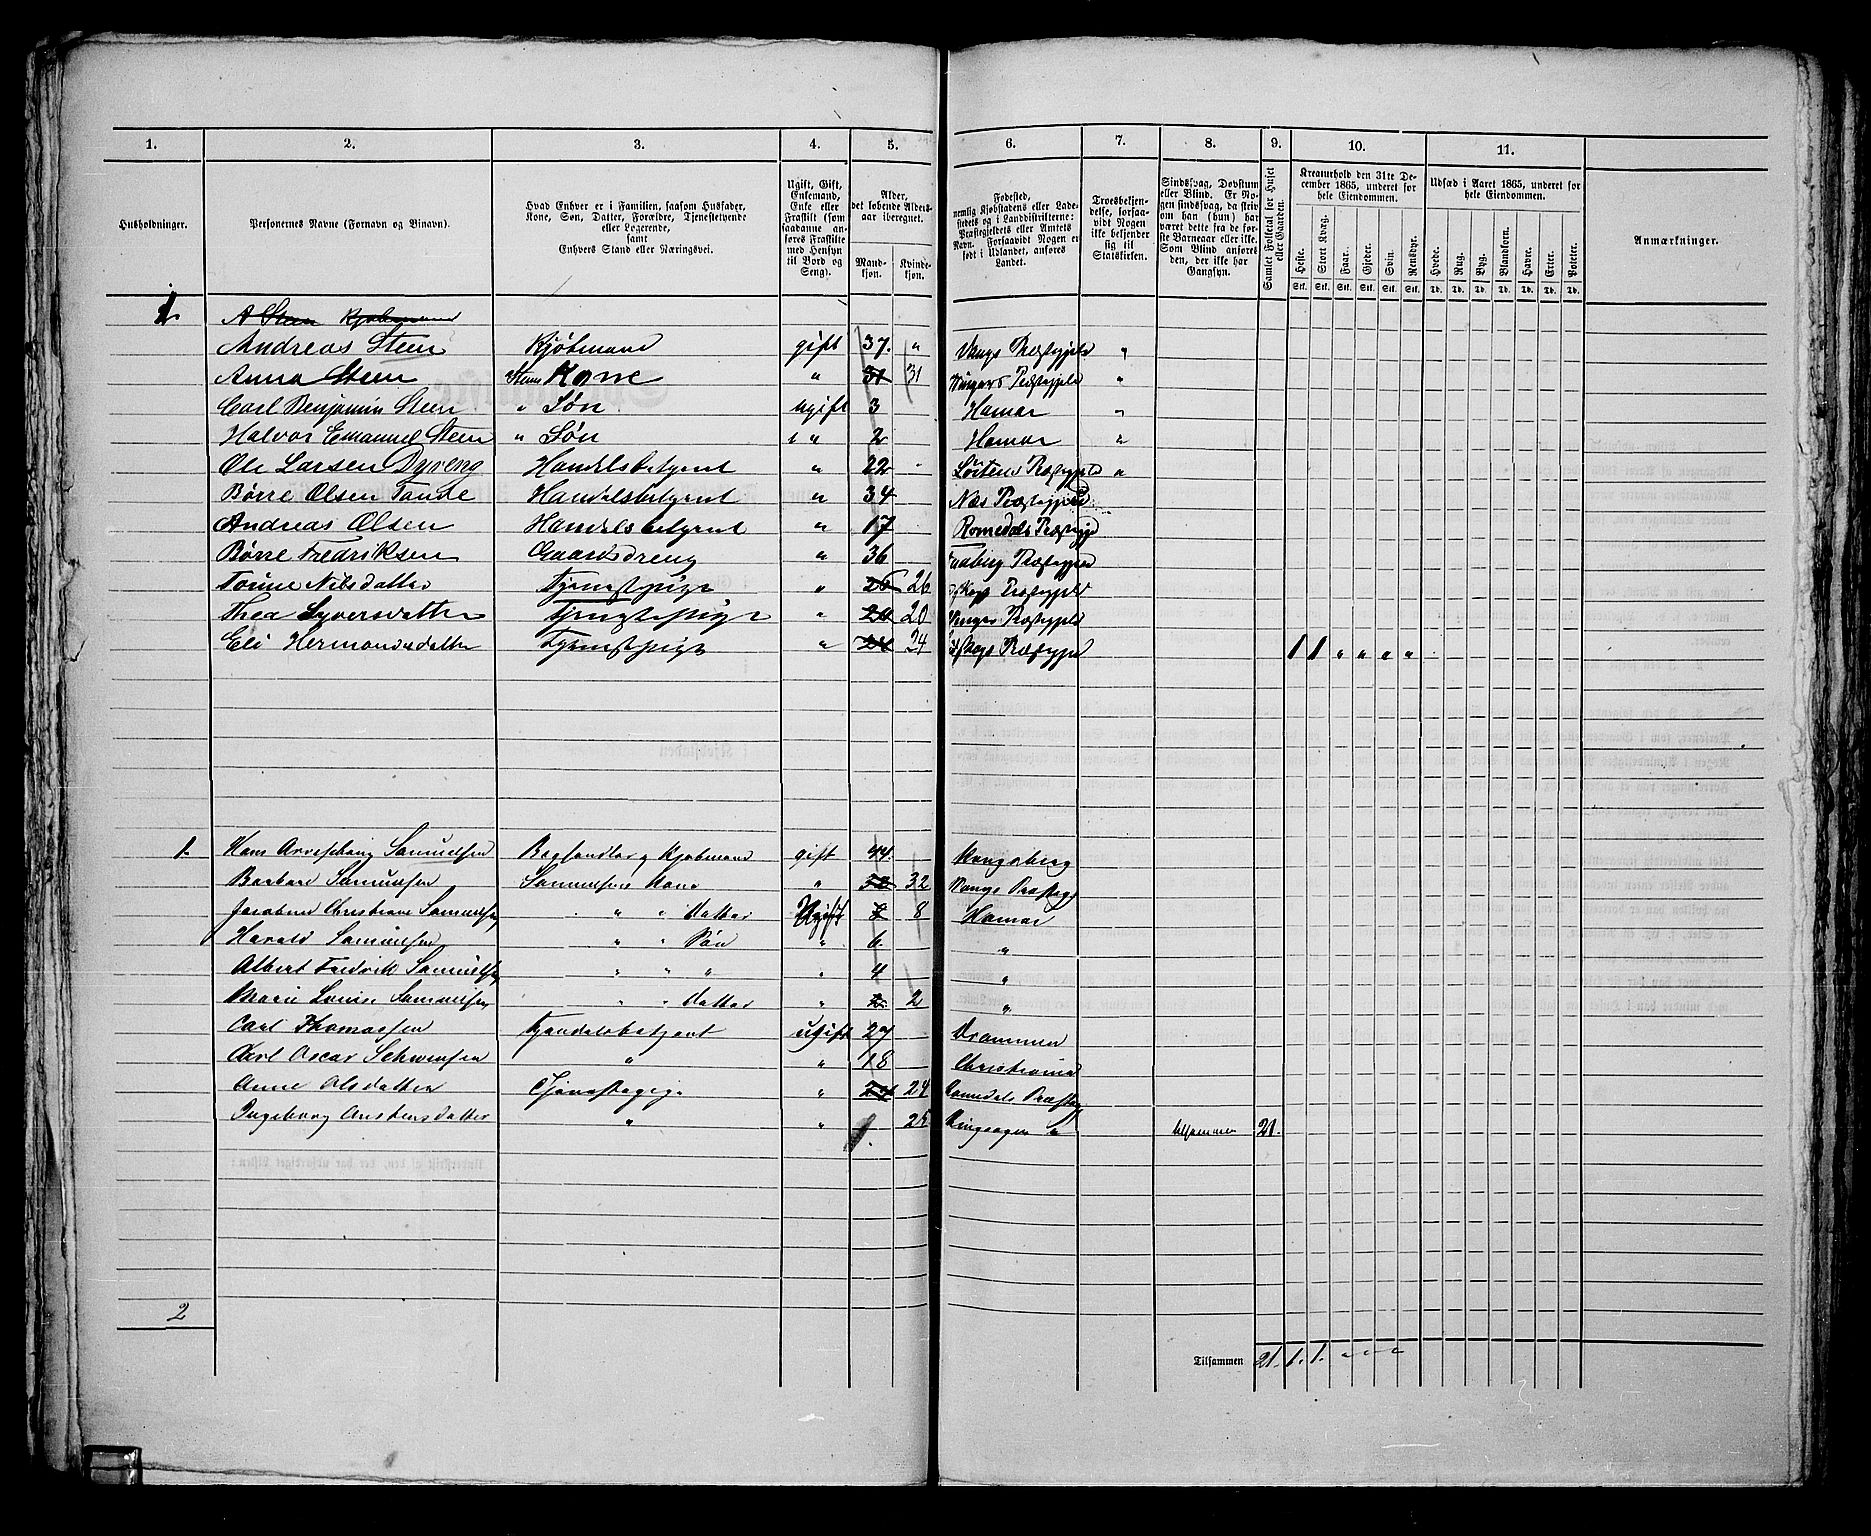 1. 2. 3. 4. 5. 6. 7. 8. 9. 10. 11.
Husholdninger.
Personernes Navne (Fornavn og Binavn).
Hvad Enhver er i Familien, saasom Husfader, Kone, Søn, Datter, Forældre, Tjenestetyende eller Logerende, samt Enhvers Stand eller Næringsvei.
Ugift, Gift, Enkemand, Enke eller Fraskilt (som saadanne anføres Fraskilte med Hensyn til Bord og Seng).
Alder, det løbende Aldersaar iberegnet.
Mandkjøn. Kvindekjøn.
Fødested, nemlig Kjøbstadens eller Ladestedets og i Landdistrikterne: Præstegjeldets eller Amtets Navn. Forsaavidt Nogen er født i Udlandet, anføres Landet.
Troesbekjendelse, forsaavidt Nogen ikke bekjender sig til Statskirken.
Sindssvag, Døvstum eller Blind. Er Nogen sindssvag, da skriv om han (hun) har været dette fra de første Barneaar eller ikke. Som Blind anføres den, der ikke har Gangsyn.
Samlet Folketal for Huset eller Gaarden.
Kreaturhold den 31te December 1865, underet for hele Eiendommen.
Heste. Stort Kvæg. Faar. Gjeder. Svin. Rensdyr.
Stk. Stk. Stk. Stk. Stk. Stk.
Udsæd i Aaret 1865, underet for hele Eiendommen.
Hvede. Rug. Byg. Blandkorn. Havre. Erter. Poteter.
Td. Td. Td. Td. Td. Td. Td.
Anmærkninger.
1. A Steen Kjøbmand
Andreas Steen Kjøbmand gift 37. " Vangs Præstegjeld "
Anna Steen Steens Kone " 31 31 Præstegjeld "
Carl Benjamin Steen " Søn Ugift 3 Hamar "
Halvor Emanuel Steen " Søn " 2 Hamar "
Ole Larsen Dyreng Handelsbetjent " 22 Løiten Præstegjeld "
Børre Olsen Tande Handelsbetjent " 34 Næs Præstegjeld
Andreas Olsen Handelsbetjent " 17 Romedals Præstegjd
Børre Fredriksen Gaardsdreng " 36 Faaberg Præstegjeld
Tonne Nilsdatter Tjenestpige " 26 26 Præstegjeld
Thea Syversdatter Tjenestepige " 20 20 Vangs Præstegjeld
Eli Hermansdatter Tjenestpige " 24 24 Præstegjeld 1 1 " " " "
1. Hans Samuelsen Boghandler og Kjøbmand gift 44. Kongsberg
Barbara Samuelsen Samuelsens Kone " 32 32 Vangs Præstegj
Jacobine Christiane Samuelsen " " Datter Ugift 8 8 Hamar
Harald Samuelsen " " Søn " 6 "
Albert Fredrik Samuelsen " " " " 4 "
Marie Louise Samuelsen " " Datter " 2 2 "
Carl Thomassen Handelsbetjent ugift 27 Drammen
Carl Oscar Schwensen " " 18 Christiania
Anne Olsdatter Tjenestepige " 24 24 Romedals Præsteg
Ingeborg Austensdatter " " 25 Ringsager " tilsammen 21.
2
Tilsammen 21. 1. 1. " " "